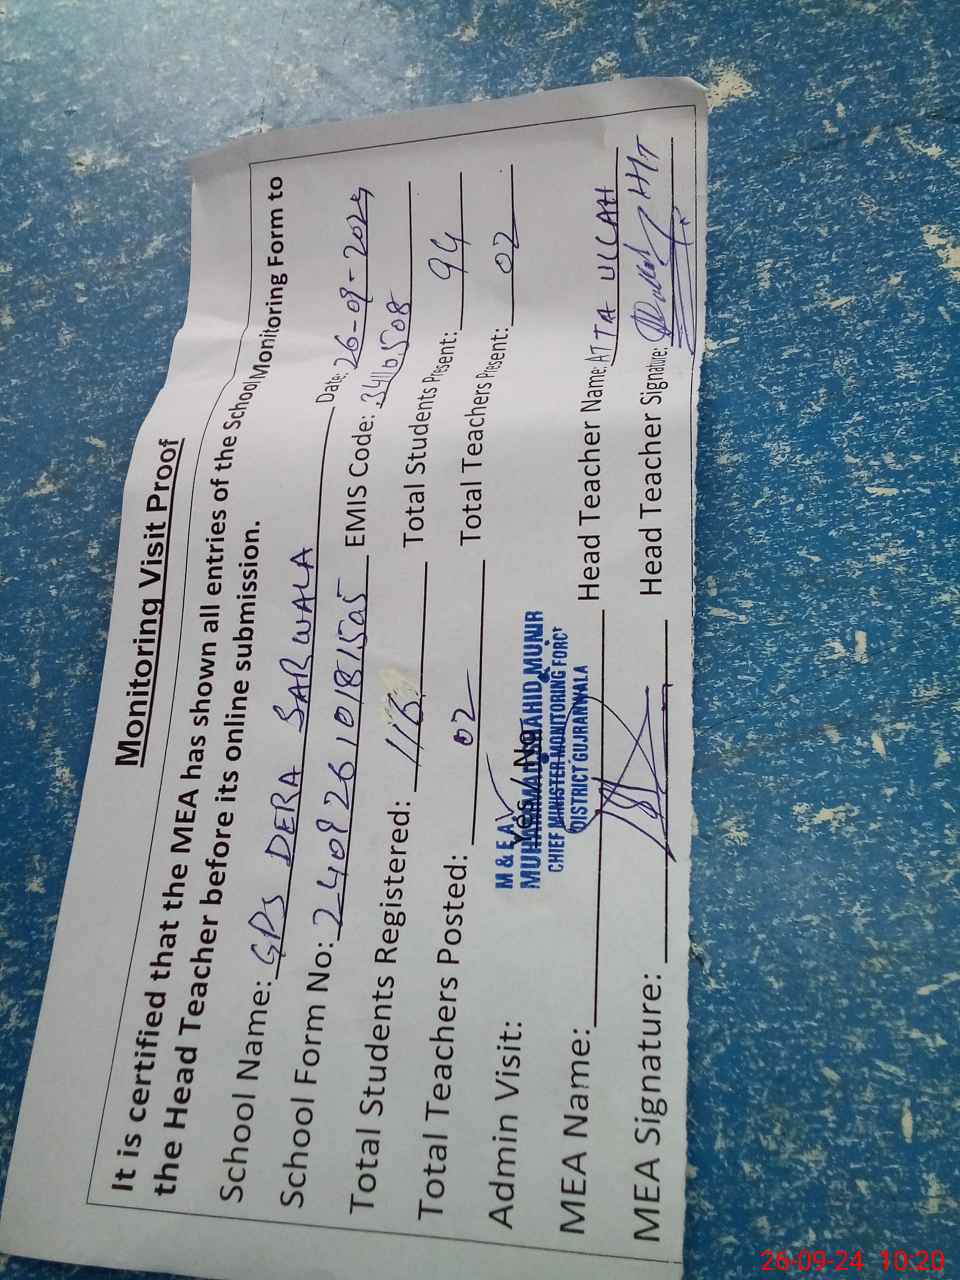 Monitoring Visit Proof
It is certified that the MEA has shown all entries of the School Monitoring Form to
the Head Teacher before its online submission.
School Name: GPS DERA SARWALA Date: 26-09-2024
School Form No: 24092610181505 EMIS Code: 34110508
Total Students Registered: 116 Total Students Present: 94
Total Teachers Posted: 02 Total Teachers Present: 02
Admin Visit: Yes / No
M & E A
MUHAMMAD SHAHID MUNIR
CHIEF MINISTER MONITORING FORCE
DISTRICT GUJRANWALA
MEA Name: Head Teacher Name: ATTA ULLAH
MEA Signature: Head Teacher Signature:
26-09-24 10:20